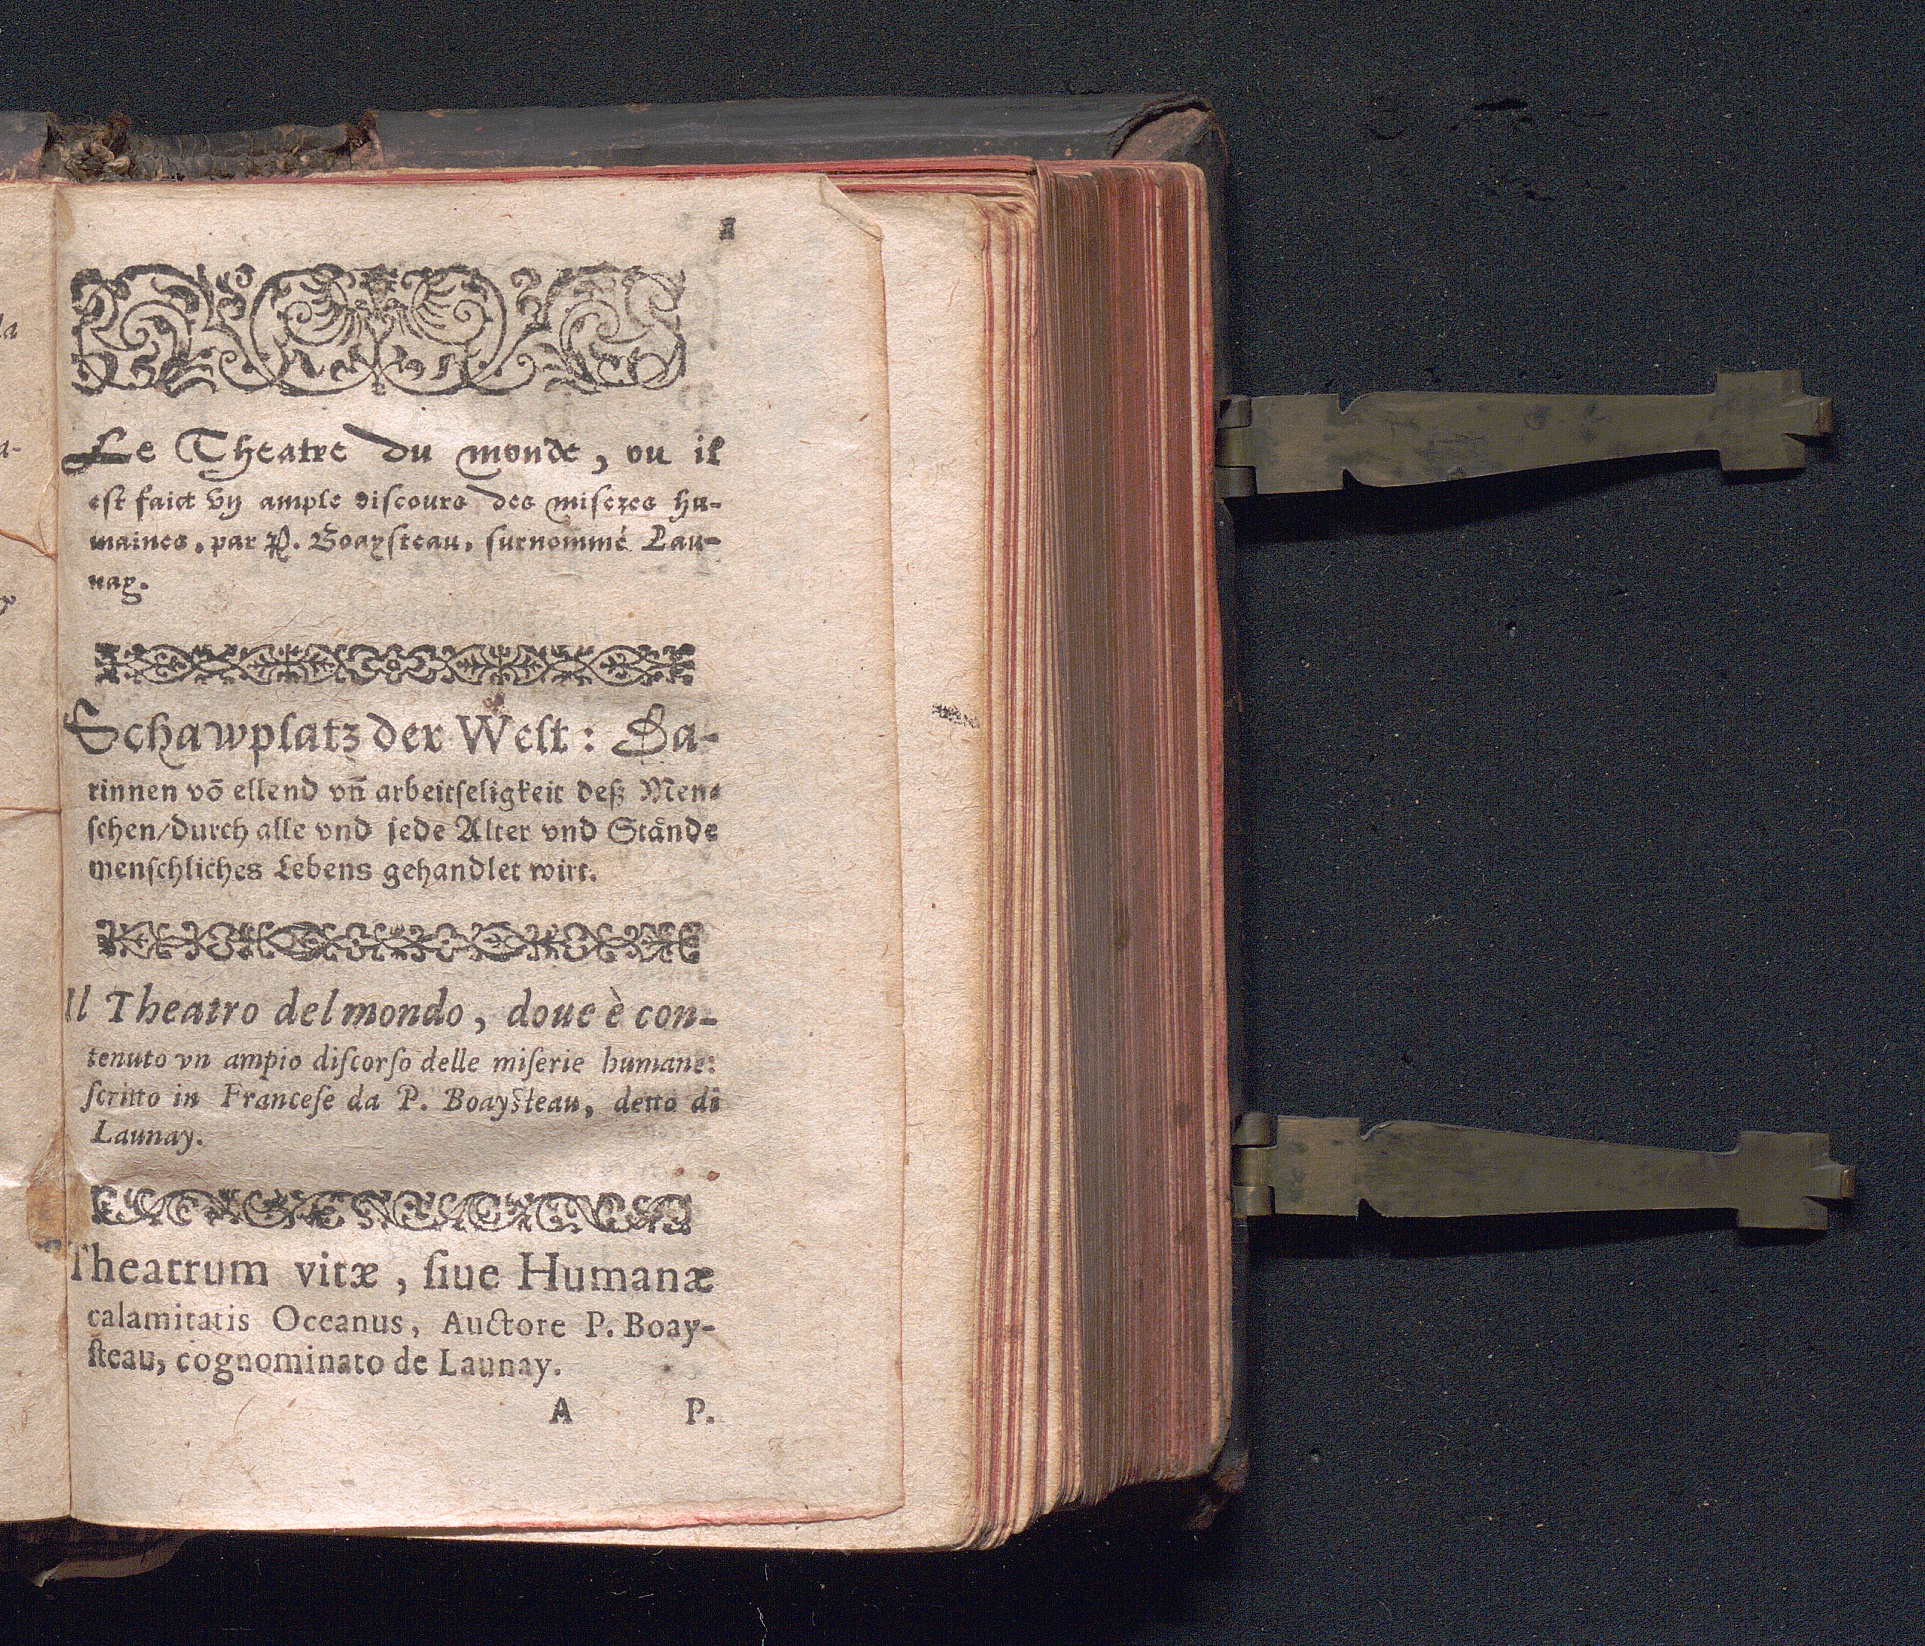 1
Le Theatre du monde, ou il
est faict vn ample discours des miseres hu-
maines, par P. Boaysteau, surnommé Lau-
nay.
Schawplatz der Welt: Da-
rinnen võ ellend vñ arbeitſeligkeit deß Men-
ſchen/durch alle vnd jede Alter vnd Stånde
menſchliches Lebens gehandlet wirt.
Il Theatro del mondo, doue è con-
tenuto vn ampio diſcorſo delle miſerie humane:
ſcritto in Franceſe da P. Boayſteau, detto di
Launay.
Theatrum vitæ, ſiue Humanæ
calamitatis Oceanus, Auctore P. Boay-
ſteau, cognominato de Launay.
A P.